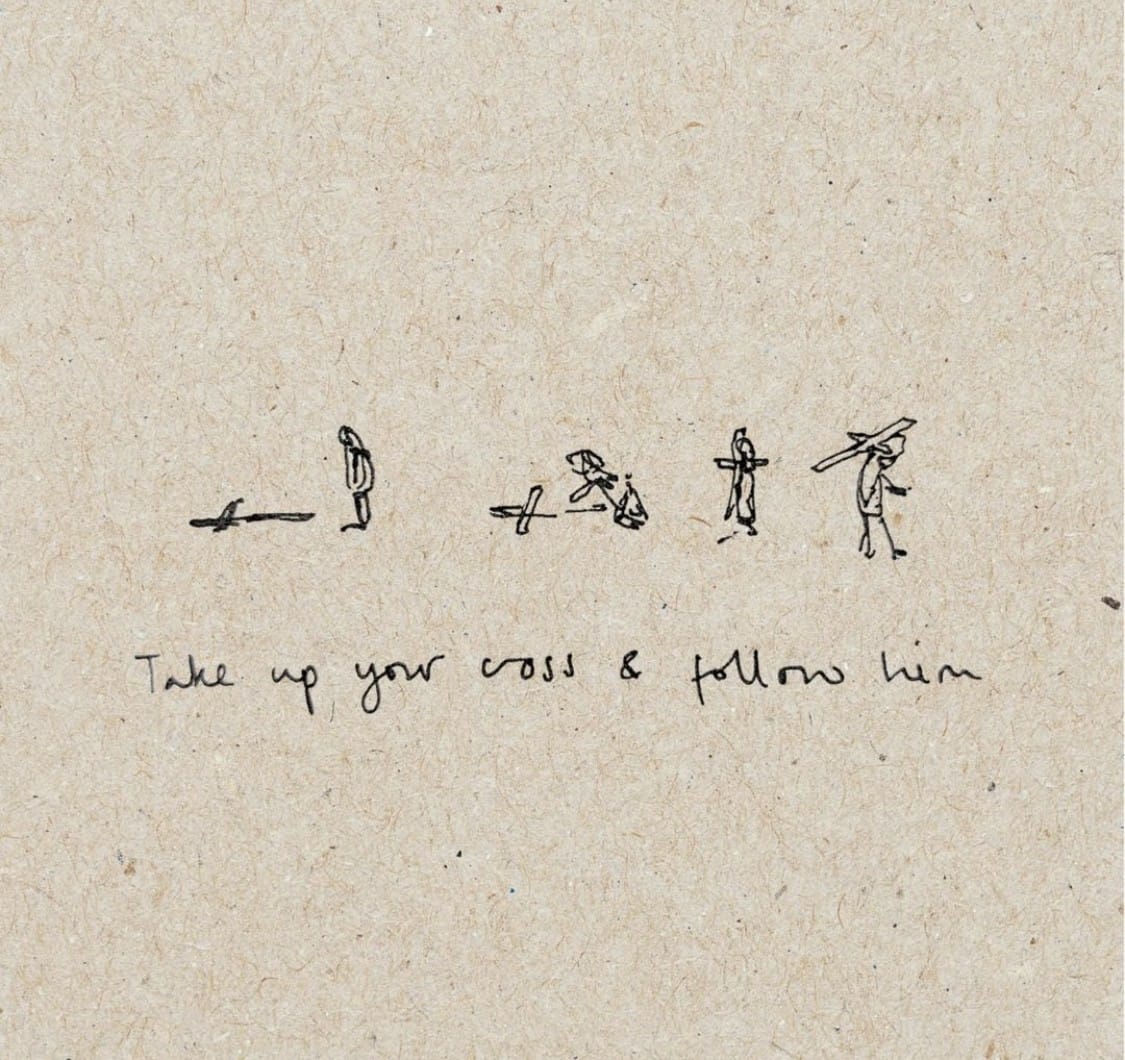 Take up your cross & follow him